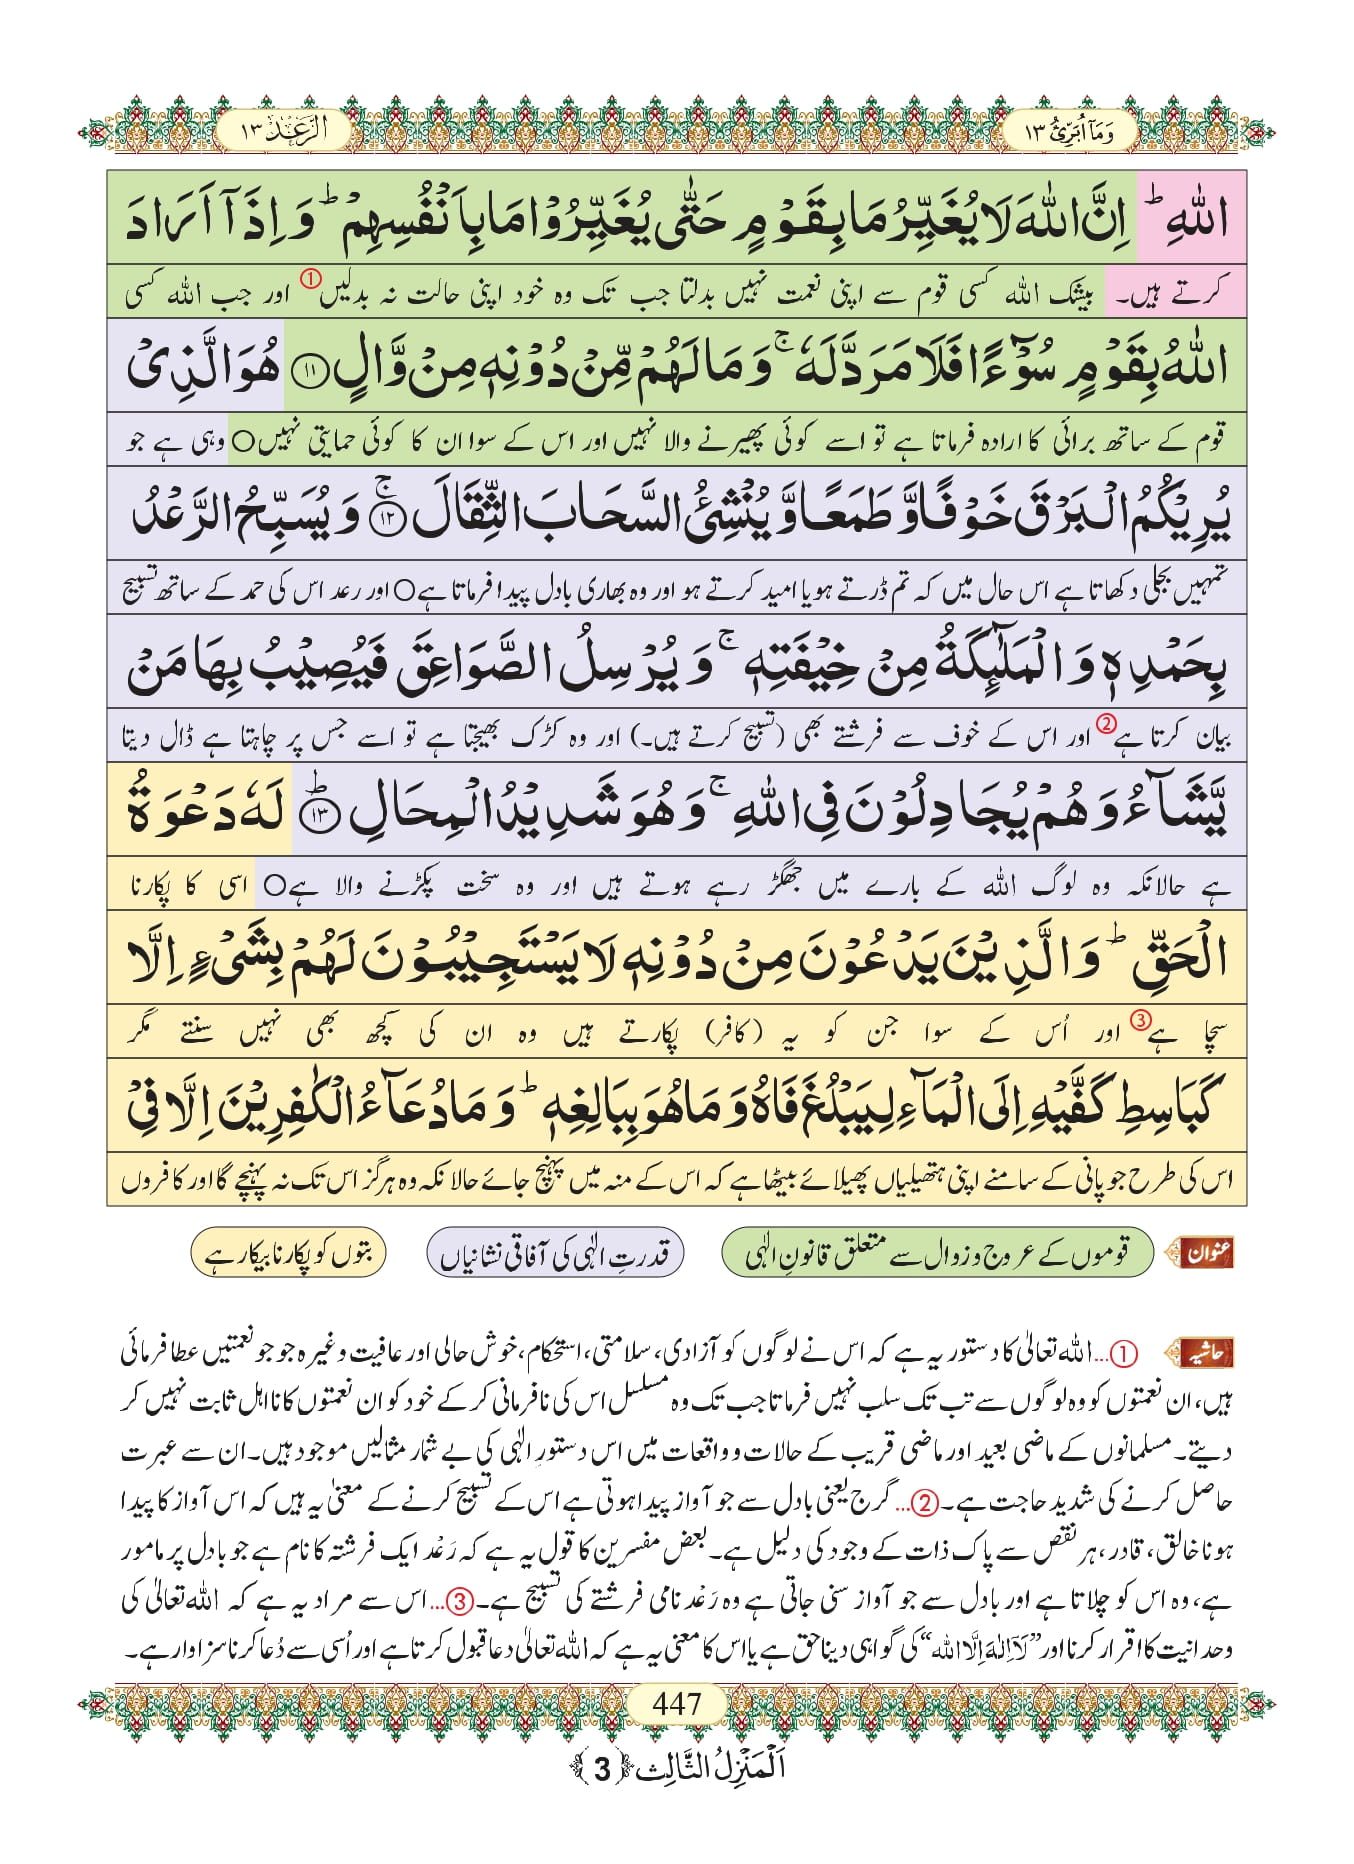 وَمَآ اُبَرِّئُ ١٣
الرَّعْد ١٣
اللّٰهِ ؕ اِنَّ اللّٰهَ لَا یُغَیِّرُ مَا بِقَوْمٍ حَتّٰى یُغَیِّرُوْا مَا بِاَنْفُسِهِمْ ؕ وَ اِذَاۤ اَرَادَ
کرتے ہیں۔ بیشک اللہ کسی قوم سے اپنی نعمت نہیں بدلتا جب تک وہ خود اپنی حالت نہ بدلیں① اور جب اللہ کسی
اللّٰهُ بِقَوْمٍ سُوْٓءًا فَلَا مَرَدَّ لَهٗ ۚ وَ مَا لَهُمْ مِّنْ دُوْنِهٖ مِنْ وَّالٍ ﴿۱۱﴾ هُوَ الَّذِیْ
قوم کے ساتھ برائی کا ارادہ فرماتا ہے تو اسے کوئی پھیرنے والا نہیں اور اس کے سوا ان کا کوئی حمایتی نہیں○ وہی ہے جو
یُرِیْكُمُ الْبَرْقَ خَوْفًا وَّ طَمَعًا وَّ یُنْشِئُ السَّحَابَ الثِّقَالَ ۚ﴿۱۲﴾ وَ یُسَبِّحُ الرَّعْدُ
تمہیں بجلی دکھاتا ہے اس حال میں کہ تم ڈرتے ہو یا امید کرتے ہو اور وہ بھاری بادل پیدا فرماتا ہے○ اور رعد اس کی حمد کے ساتھ تسبیح
بِحَمْدِهٖ وَ الْمَلٰٓىٕكَةُ مِنْ خِیْفَتِهٖ ۚ وَ یُرْسِلُ الصَّوَاعِقَ فَیُصِیْبُ بِهَا مَنْ
بیان کرتا ہے② اور اس کے خوف سے فرشتے بھی (تسبیح کرتے ہیں۔) اور وہ کڑک بھیجتا ہے تو اسے جس پر چاہتا ہے ڈال دیتا
یَّشَآءُ وَ هُمْ یُجَادِلُوْنَ فِی اللّٰهِ ۚ وَ هُوَ شَدِیْدُ الْمِحَالِ ؕ﴿۱۳﴾ لَهٗ دَعْوَةُ
ہے حالانکہ وہ لوگ اللہ کے بارے میں جھگڑ رہے ہوتے ہیں اور وہ سخت پکڑنے والا ہے○ اسی کا پکارنا
الْحَقِّ ؕ وَ الَّذِیْنَ یَدْعُوْنَ مِنْ دُوْنِهٖ لَا یَسْتَجِیْبُوْنَ لَهُمْ بِشَیْءٍ اِلَّا
سچا ہے③ اور اُس کے سوا جن کو یہ (کافر) پکارتے ہیں وہ ان کی کچھ بھی نہیں سنتے مگر
كَبَاسِطِ كَفَّیْهِ اِلَى الْمَآءِ لِیَبْلُغَ فَاهُ وَ مَا هُوَ بِبَالِغِهٖ ؕ وَ مَا دُعَآءُ الْكٰفِرِیْنَ اِلَّا فِیْ
اس کی طرح جو پانی کے سامنے اپنی ہتھیلیاں پھیلائے بیٹھا ہے کہ اس کے منہ میں پہنچ جائے حالانکہ وہ ہرگز اس تک نہ پہنچے گا اور کافروں
عنوان قوموں کے عروج و زوال سے متعلق قانونِ الٰہی قدرتِ الٰہی کی آفاقی نشانیاں بتوں کو پکارنا بیکار ہے
حاشیہ ①... اللہ تعالیٰ کا دستور یہ ہے کہ اس نے لوگوں کو آزادی، سلامتی، استحکام، خوش حالی اور عافیت وغیرہ جو جو نعمتیں عطا فرمائی
ہیں، ان نعمتوں کو وہ لوگوں سے تب تک سلب نہیں فرماتا جب تک وہ مسلسل اس کی نافرمانی کرکے خود کو ان نعمتوں کا نااہل ثابت نہیں کر
دیتے۔ مسلمانوں کے ماضی بعید اور ماضی قریب کے حالات و واقعات میں اس دستورِ الٰہی کی بے شمار مثالیں موجود ہیں۔ ان سے عبرت
حاصل کرنے کی شدید حاجت ہے۔ ②... گرج یعنی بادل سے جو آواز پیدا ہوتی ہے اس کے تسبیح کرنے کے معنیٰ یہ ہیں کہ اس آواز کا پیدا
ہونا خالق، قادر، ہر نقص سے پاک ذات کے وجود کی دلیل ہے۔ بعض مفسرین کا قول یہ ہے کہ رَعْد ایک فرشتہ کا نام ہے جو بادل پر مامور
ہے، وہ اس کو چلاتا ہے اور بادل سے جو آواز سنی جاتی ہے وہ رَعْد نامی فرشتے کی تسبیح ہے۔ ③... اس سے مراد یہ ہے کہ اللہ تعالیٰ کی
وحدانیت کا اقرار کرنا اور ”لَآ اِلٰهَ اِلَّا الله“ کی گواہی دینا حق ہے یا اس کا معنی یہ ہے کہ اللہ تعالیٰ دعا قبول کرتا ہے اور اُسی سے دُعا کرنا سزاوار ہے۔
447
اَلْمَنْزِلُ الثَّالِث ﴿3﴾